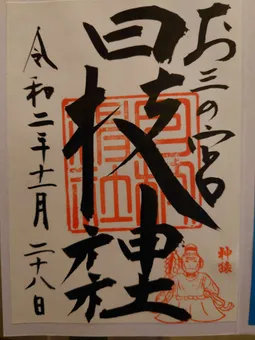 お三の宮
日枝神社
令和二年十一月二八日
神猿